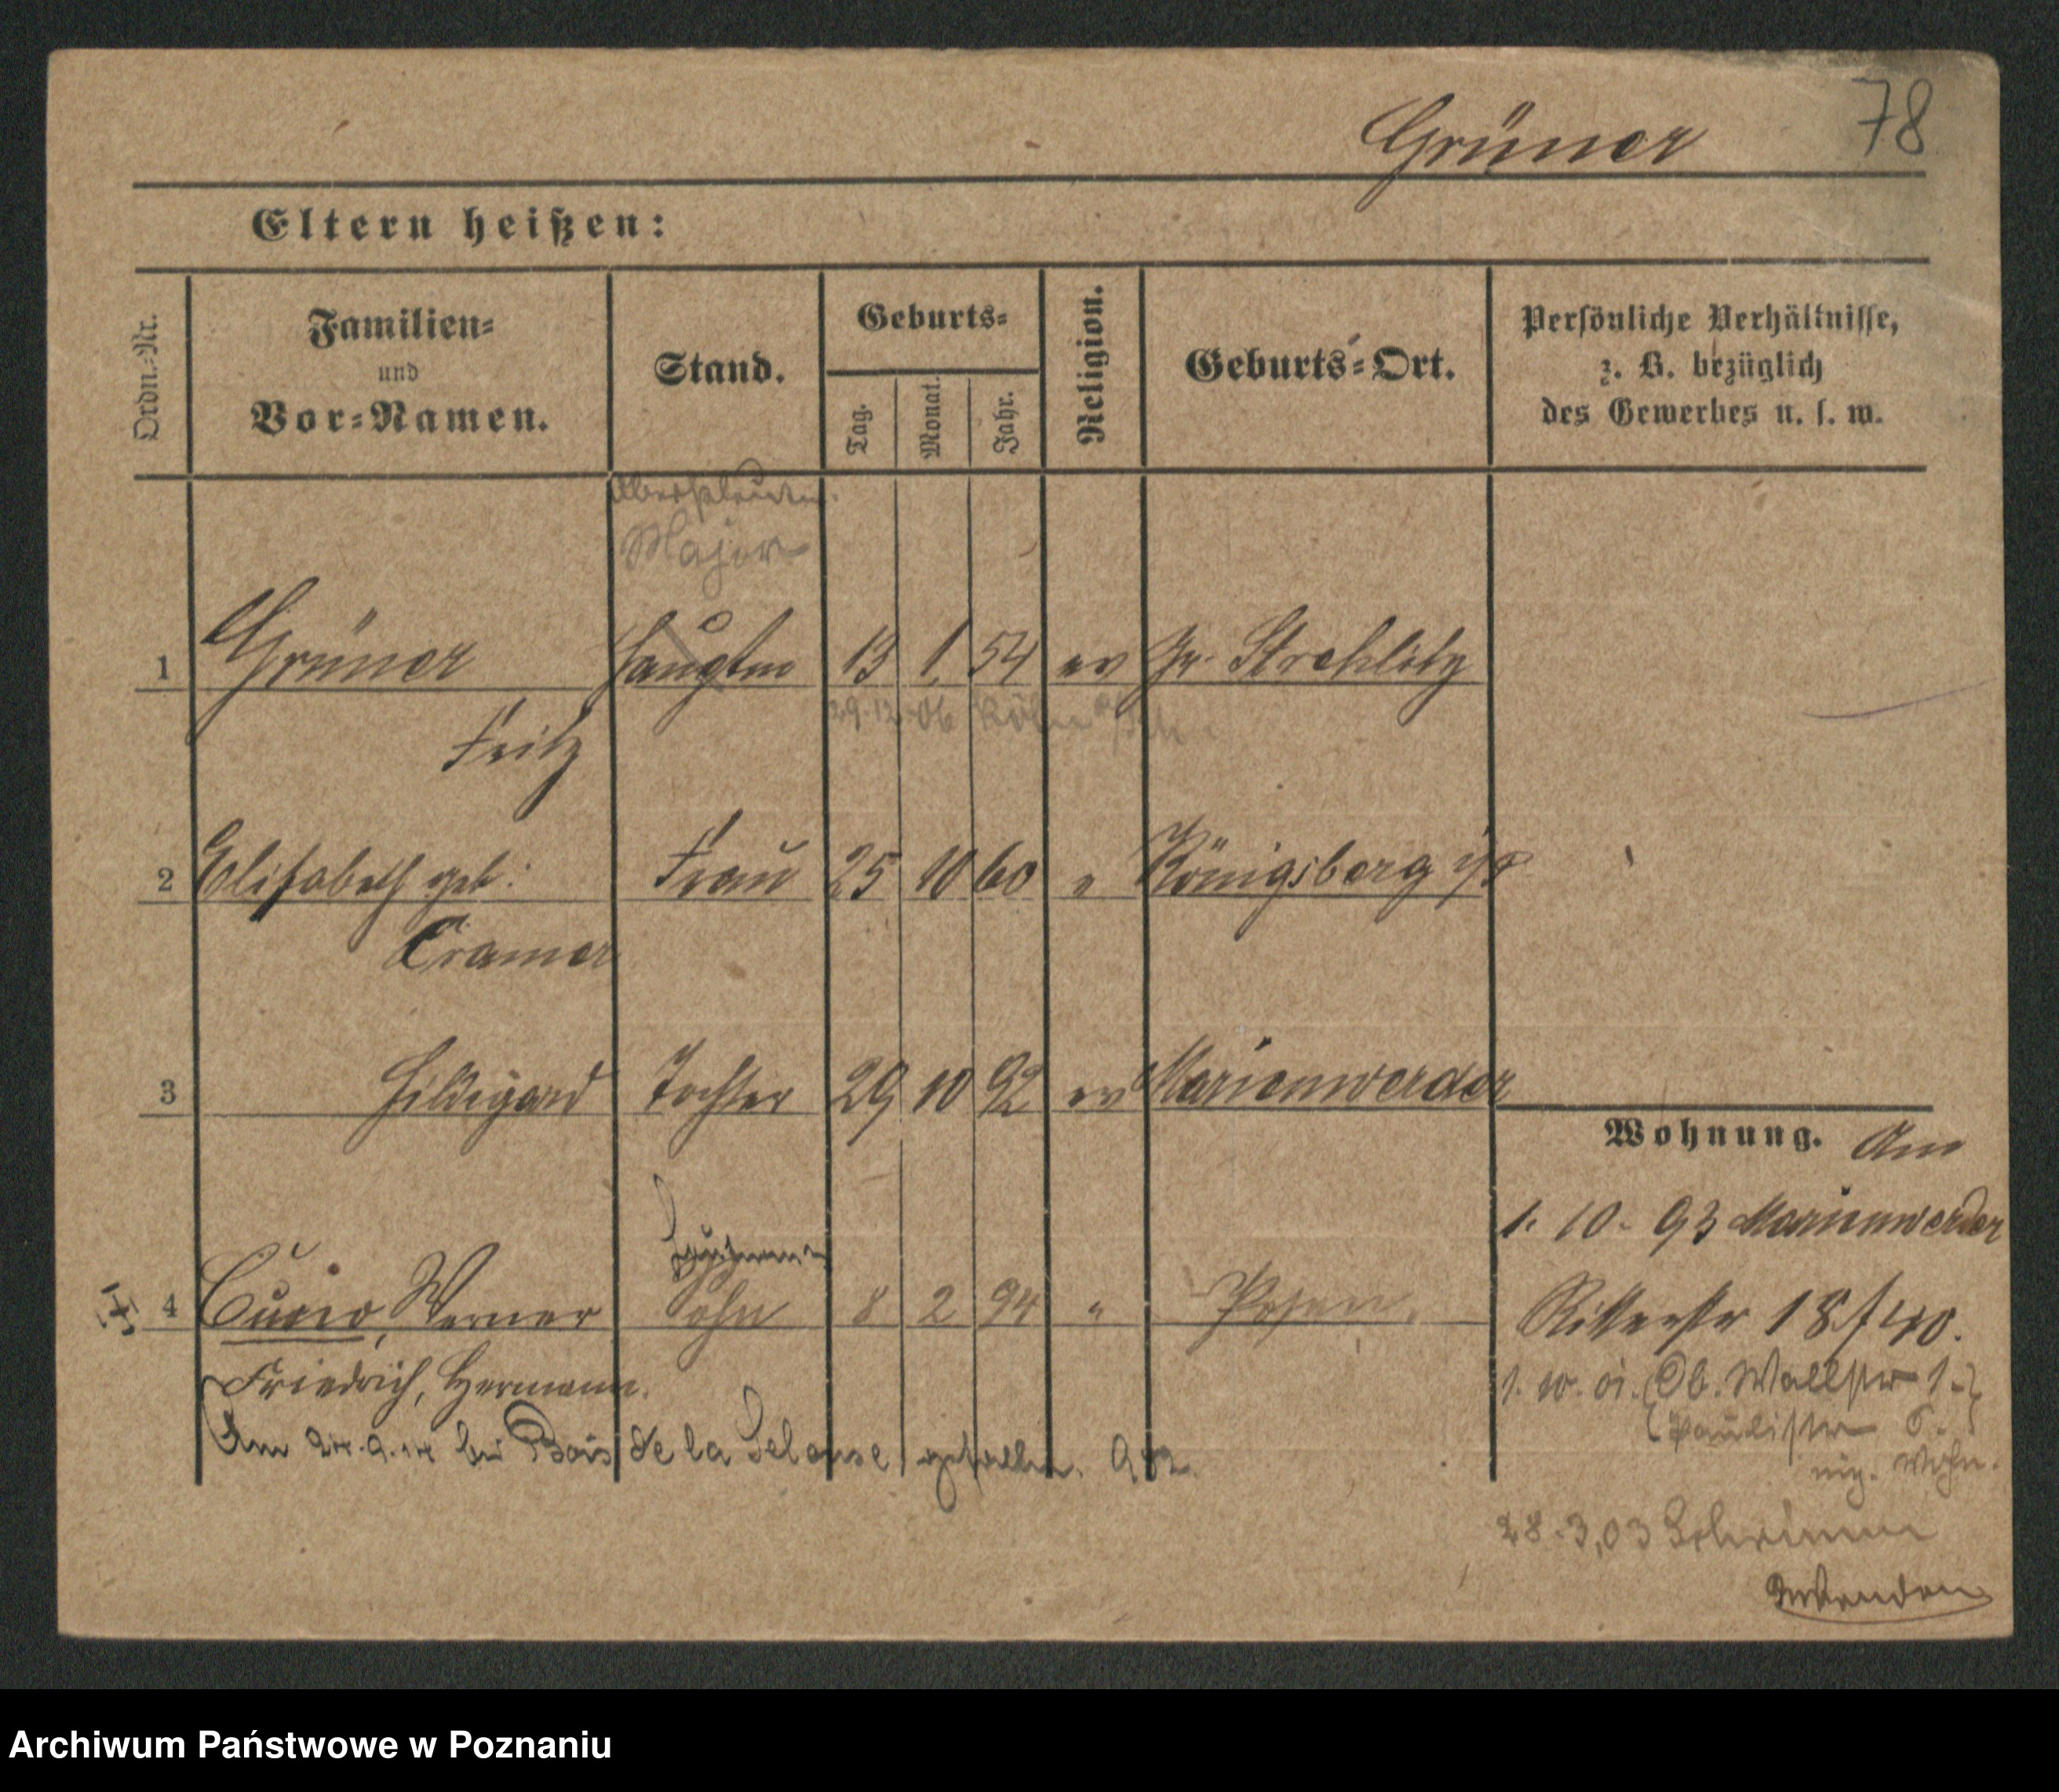 Grüner 78
Eltern heißen:
Ordn.-Nr.
Familien- und Vor-Namen.
Stand.
Geburts-
Tag. Monat. Jahr.
Religion.
Geburts-Ort.
Persönliche Verhältnisse,
z. B. bezüglich
des Gewerbes u. s. w.
Major
1 Grüner Hauptm 13 1 54 ev Gr. Strehlitz
29.12.06
Fritz
2 Elisabeth geb. Frau 25 10 60 " Königsberg i/P
Cramer
3 Hildegard Tochter 29 10 92 ev Marienwerder
Wohnung. Am
1. 10. 93 Marienwerder
4 Werner Sohn 8 2 94 " Posen.
Ritterstr 18
Friedrich, Hermann.
1. 10. 01. Ob. Wallstr 1.
Paulistr
Am 24.9.14 bei Bois de la gefallen.
28.3.03 Schrimm